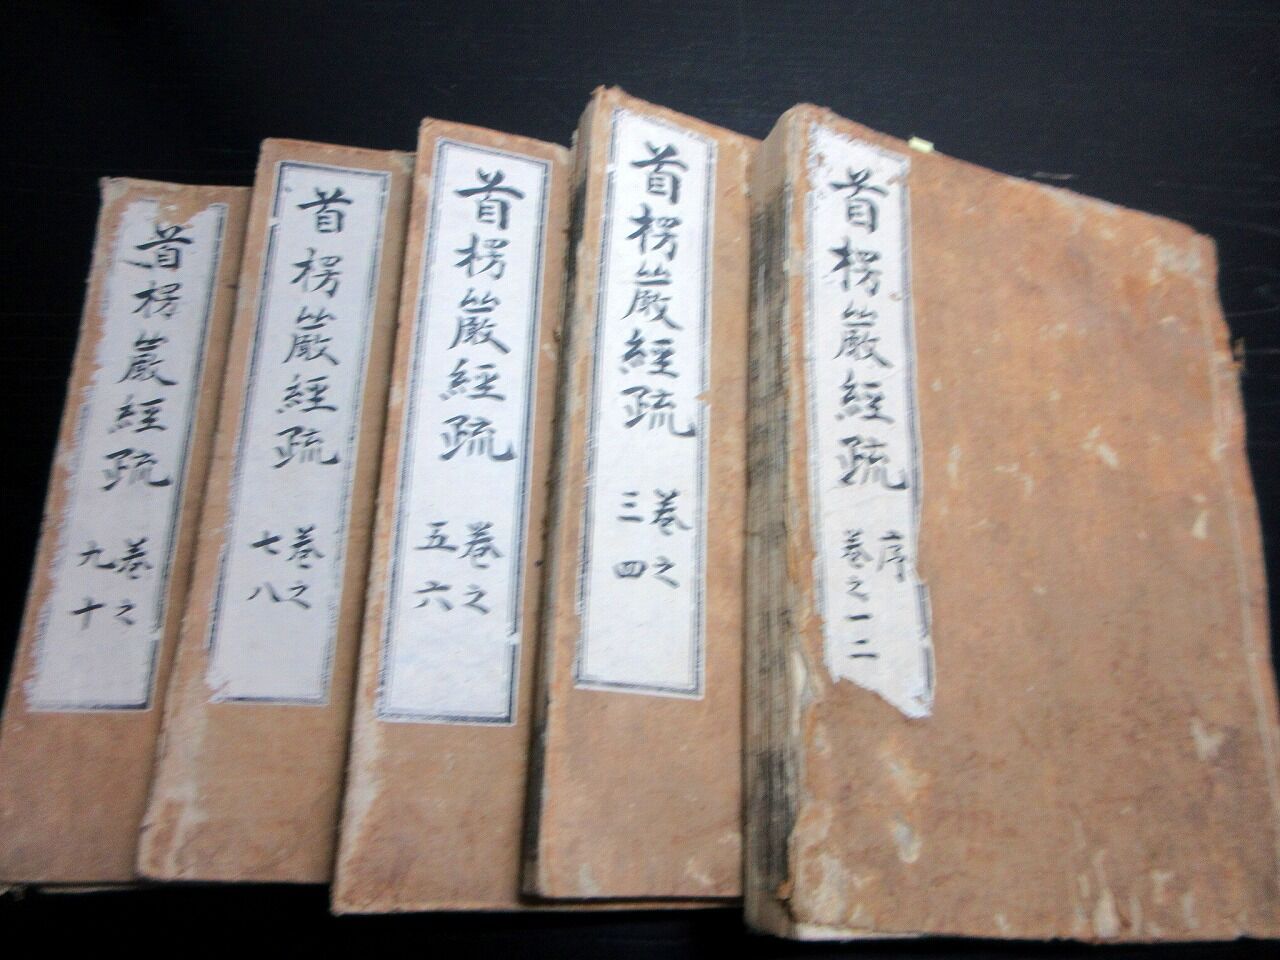 首楞嚴經疏
序
卷之一二
首楞嚴經疏
卷之
三四
首楞嚴經疏
卷之
五六
首楞嚴經疏
卷之
七八
首楞嚴經疏
卷之
九十